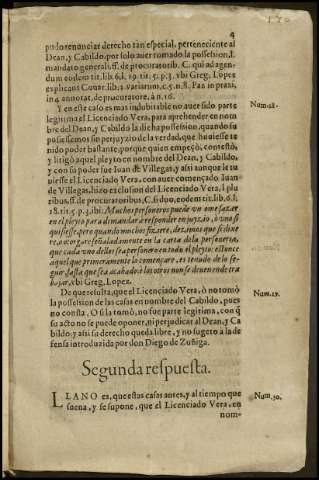 4
pudo renunciar derecho tan especial, perteneciente al
Dean, y Cabildo, por solo auer tomado la possession, l.
mandato generali, ff. de procuratorib. C. qui ad agen-
dum eodem tit. lib. 6. l. 19. tit. 5. p. 3. vbi Greg. Lopez
explicat Couar. lib. 1. variarum, c. 5. n. 8. Paz in praxi,
in 4. annotat. de procuratore, à n. 16.
Y en este caso es mas indubitable no auer sido parte
legitima el Licenciado Vera, para aprehender en nom
bre del Dean, y Cabildo la dicha possession, quando su
possessiemos sin perjuyzio de la verdad, que huuiesse te
nido poder bastante, porque quien empeçò, contestò,
y litigò aquel pleyto en nombre del Dean, y Cabildo,
y con su poder fue Iuan de Villegas, y assi aunque le tu
uiesse el Licenciado Vera, con auer començado Iuan
de Villegas, hizo exclusion del Licenciado Vera, l. plu
ribus, ff. de procuratoribus, C. si duo, eodem tit. lib. 6. l.
18. tit. 5. p. 3. ibi: Muchos personeros puede vn ome fazer
en el pleyto para a demandar è responder en juyzio, ò vno si
quisiesse, pero quando muchos fiziere, dezimos que si dixe
re, a otorgare señaladamente en la carta de la personeria,
que cada vno dellos sea personero en todo el pleyto: estonce
aquel que primeramente lo començare, es tenudo de lo se-
guir fasta que sea acabado: è los otros non se deuen ende tra
bajar, vbi Greg. Lopez.
De que resulta, que el Licenciado Vera, ò no tomò
la possession de las casas en nombre del Cabildo, pues
no consta. O si la tomò, no fue parte legitima, con q̃
su acto no se puede oponer, ni perjudicar al Dean, y Ca
bildo: y assi su derecho queda libre, y no sugeto a la de
fensa introducida por don Diego de Zuñiga.
Segunda respuesta.
LLANO es, que estas casas antes, y al tiempo que
suena, y se supone, que el Licenciado Vera, en
nom-
Num. 28.
Num. 29.
Num. 30.